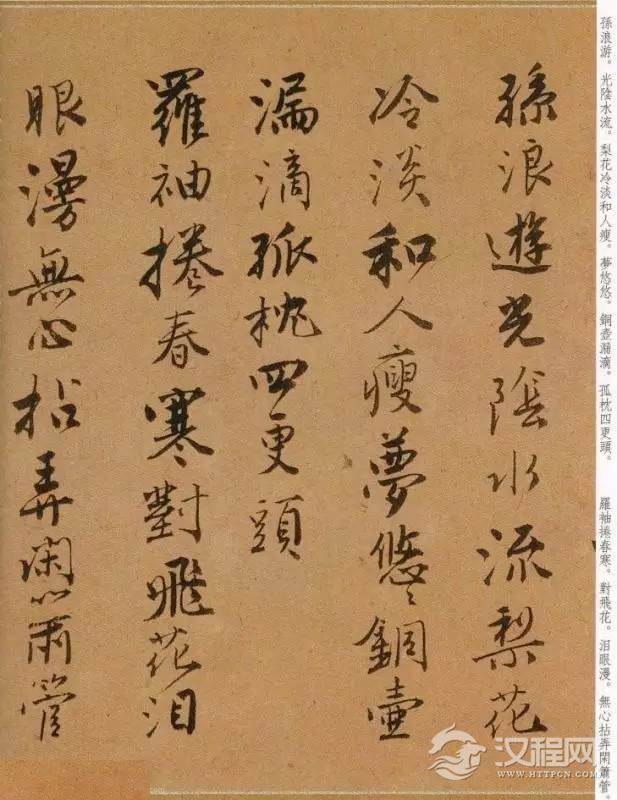 孫浪遊光陰水流梨花
冷淡和人瘦夢悠〻銅壺
漏滴孤枕四更頭
羅袖捲春寒對飛花泪
眼漫無心拈弄閑簫管
孫浪游。光陰水流。梨花冷淡和人瘦。夢悠悠。銅壺漏滴。孤枕四更頭。
羅袖捲春寒。對飛花。泪眼漫。無心拈弄閑簫管。
汉程网
WWW.HTTPCN.COM